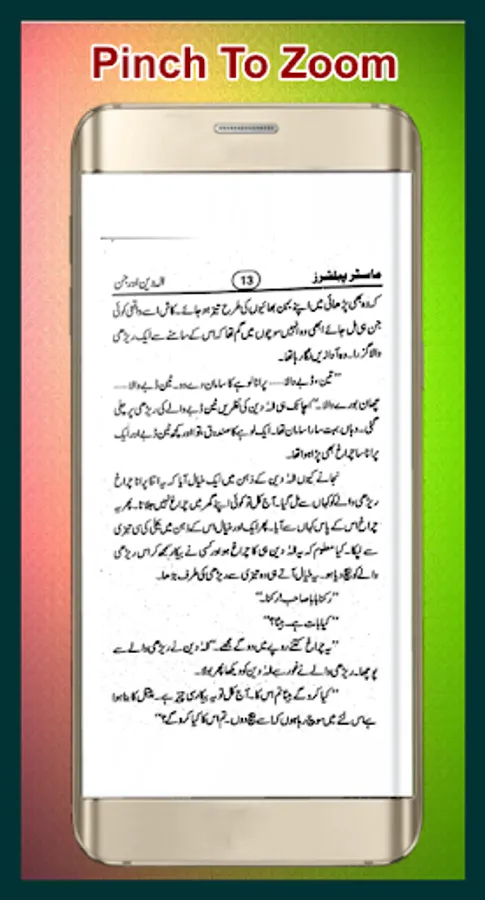 Pinch To Zoom
ماسٹر پبلشرز 13 الہ دین اور جن
کہ وہ بھی پڑھائی میں اپنے بہن بھائیوں کی طرح تیز ہو جائے۔ کاش اسے واقعی کوئی
جن ہی مل جائے ابھی وہ انہیں سوچوں میں گم تھا کہ اس کے سامنے سے ایک ریڑھی
والا گزرا۔ وہ آوازیں لگا رہا تھا۔
”ٹین، ڈبے والا..... پرانا لوہے کا سامان دے دو۔ ٹین ڈبے والا.....
چھان بورے والا۔“ اچانک ہی الہٰ دین کی نظریں ٹین ڈبے والے کی ریڑھی پر چلی
گئی۔ وہاں بہت سارا سامان تھا۔ ایک لوہے کا صندوق، توا اور کچھ ٹین ڈبے اور ایک
پرانا سا چراغ بھی پڑا ہوا تھا۔
نجانے کیوں الہٰ دین کے ذہن میں ایک خیال آیا کہ یہ اتنا پرانا چراغ
ریڑھی والے کو کہاں سے مل گیا۔ آج کل تو کوئی اپنے گھر میں چراغ نہیں جلاتا۔ پھر یہ
چراغ اس کے پاس کہاں سے آیا۔ پھر ایک اور خیال اس کے ذہن میں بجلی کی سی تیزی
سے لپکا۔ کیا معلوم کہ یہ الہ دین ہی کا چراغ ہو اور کسی نے بیکار سمجھ کر اس ریڑھی
والے کو بیچ دیا ہو۔ یہ خیال آتے ہی وہ تیزی سے ریڑھی کی طرف بڑھا۔
”رکنا بابا صاحب! رکنا۔“
”کیا بات ہے۔ بیٹا؟“
”یہ چراغ کتنے روپے میں دو گے مجھے۔“ الہٰ دین نے ریڑھی والے سے
پوچھا۔ ریڑھی والے نے غور سے الہٰ دین کو دیکھا پھر بولا۔
”کیا کرو گے بیٹا تم اس کا۔ آج کل تو یہ بیکار سی چیز ہے۔ پیتل کا بنا ہوا
ہے اس لئے میں سوچ رہا ہوں کہ اسے بیچ دوں۔ تم اس کا کیا کرو گے؟“